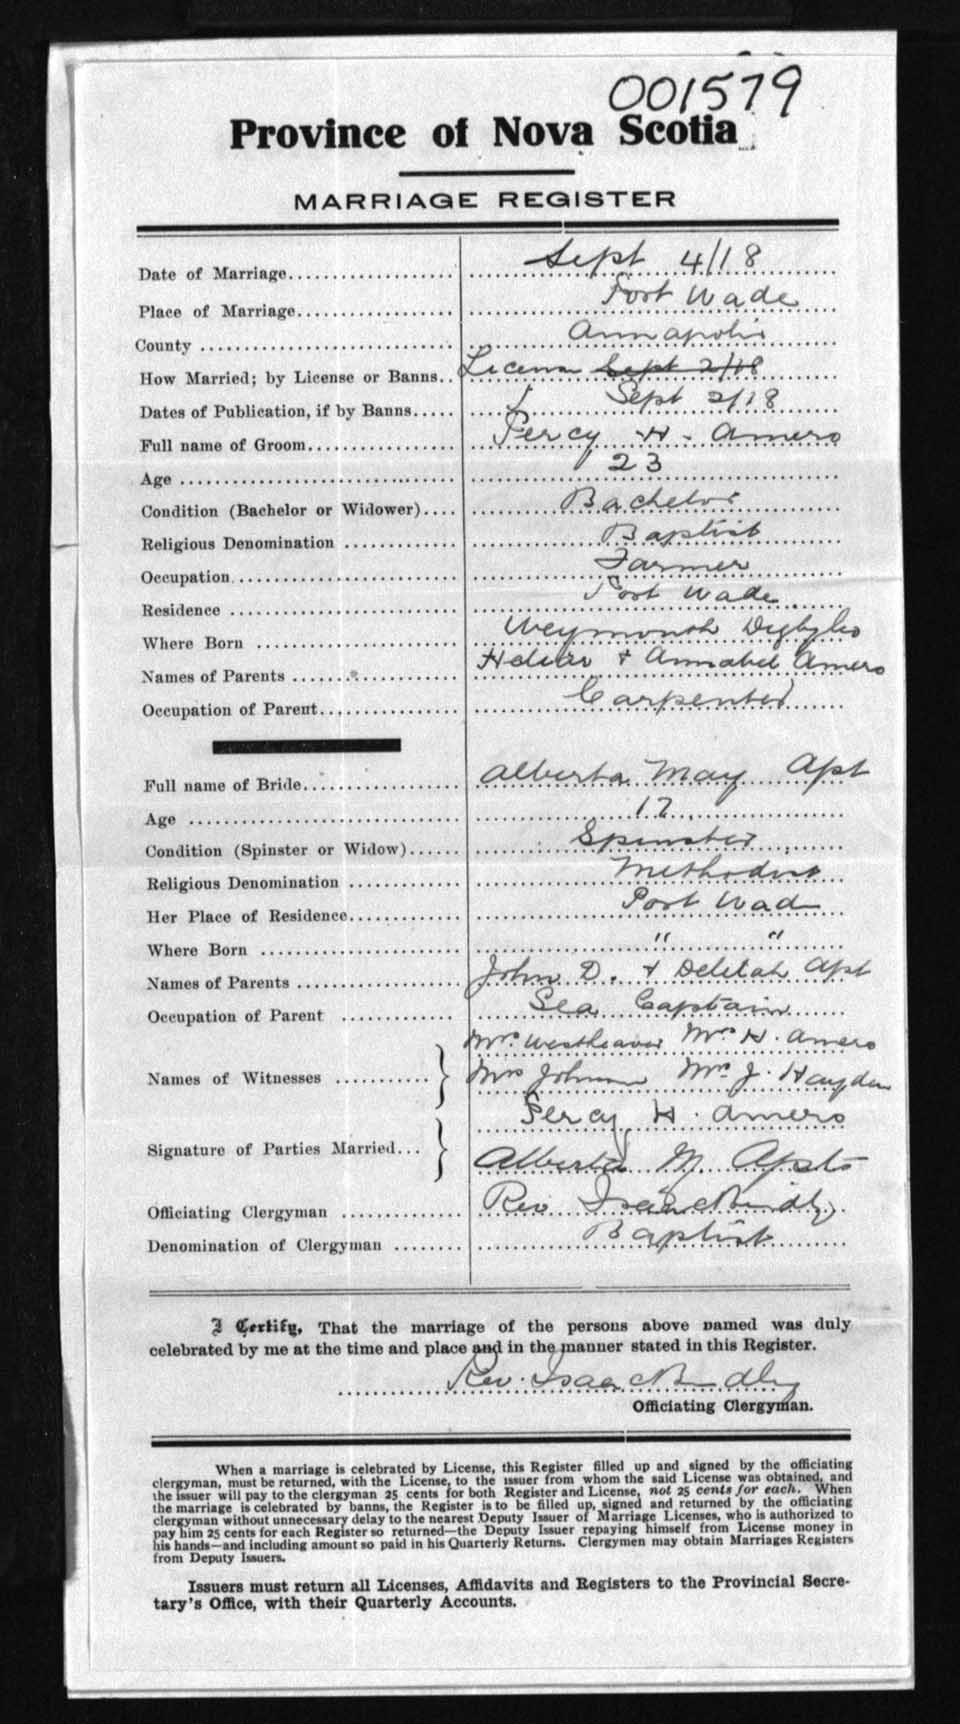 001579
Province of Nova Scotia
MARRIAGE REGISTER
Date of Marriage.................. Sept 4/18
Place of Marriage.................. Port Wade
County .............................. Annapolis
How Married; by License or Banns.. License Sept 2/18
Dates of Publication, if by Banns..... Sept 2/18
Full name of Groom.................. Percy H. Amero
Age .............................. 23
Condition (Bachelor or Widower).... Bachelor
Religious Denomination ............ Baptist
Occupation........................ Farmer
Residence ........................ Port Wade
Where Born ...................... Weymouth Digby Co
Names of Parents .................. & Annabel Amero
Occupation of Parent................ Carpenter
Full name of Bride.................. Alberta May Apt
Age .............................. 17
Condition (Spinster or Widow)...... Spinster
Religious Denomination ............ Methodist
Her Place of Residence.............. Port Wade
Where Born ...................... " "
Names of Parents .................. John D. & Delilah Apt
Occupation of Parent .............. Sea Captain
Mrs Westheaver Mrs H. Amero
Names of Witnesses ............ Mrs Johnson Mrs J. Hayden
Percy H. Amero
Signature of Parties Married... Alberta M. Apt
Officiating Clergyman .............. Rev Isaac Brindley
Denomination of Clergyman ........ Baptist
I Certify, That the marriage of the persons above named was duly
celebrated by me at the time and place and in the manner stated in this Register.
Rev. Isaac Brindley
Officiating Clergyman.
When a marriage is celebrated by License, this Register filled up and signed by the officiating
clergyman, must be returned, with the License, to the issuer from whom the said License was obtained, and
the issuer will pay to the clergyman 25 cents for both Register and License, not 25 cents for each. When
the marriage is celebrated by banns, the Register is to be filled up, signed and returned by the officiating
clergyman without unnecessary delay to the nearest Deputy Issuer of Marriage Licenses, who is authorized to
pay him 25 cents for each Register so returned—the Deputy Issuer repaying himself from License money in
his hands—and including amount so paid in his Quarterly Returns. Clergymen may obtain Marriages Registers
from Deputy Issuers.
Issuers must return all Licenses, Affidavits and Registers to the Provincial Secre-
tary's Office, with their Quarterly Accounts.